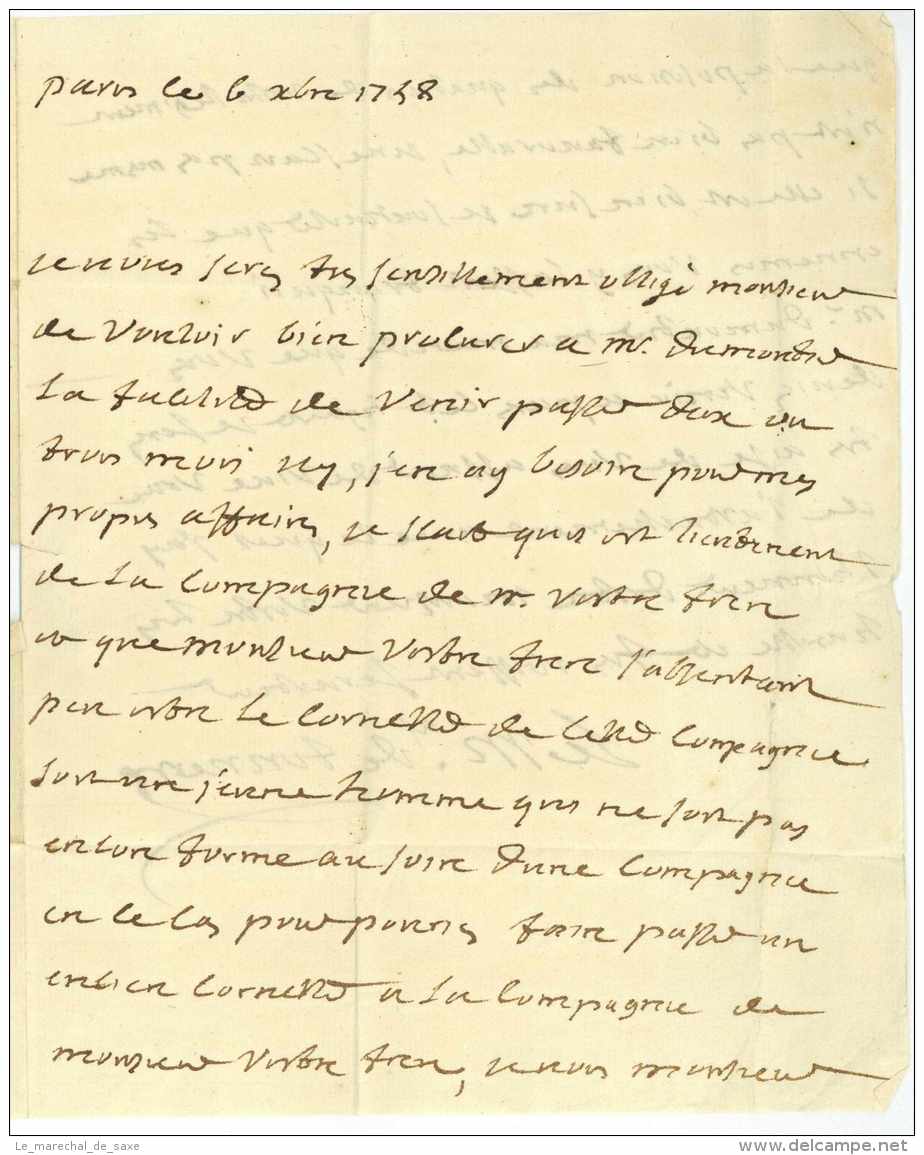 paris le 6 xbre 1758
je vous seres tres sensillement oblige monsieur
de vouloir bien procurer a mr. dumontie
la facilité de venir passer deux ou
trois mois icy, j'en ay besoin pour mes
propres affaires, je scait quis est lieutenent
de la compagnie de mr. vostre frere
et que monsieur vostre frere s'absentant
peu estre le cornette de cette compagnie
soit un jeune homme quis ne soit pas
encore forme au soin d'une compagnie
en ce cas pour pouries faire passer un
encien cornette a la compagnie de
monsieur vostre frere, je vous monsieur
Le_marechal_de_saxe
delcampe.net